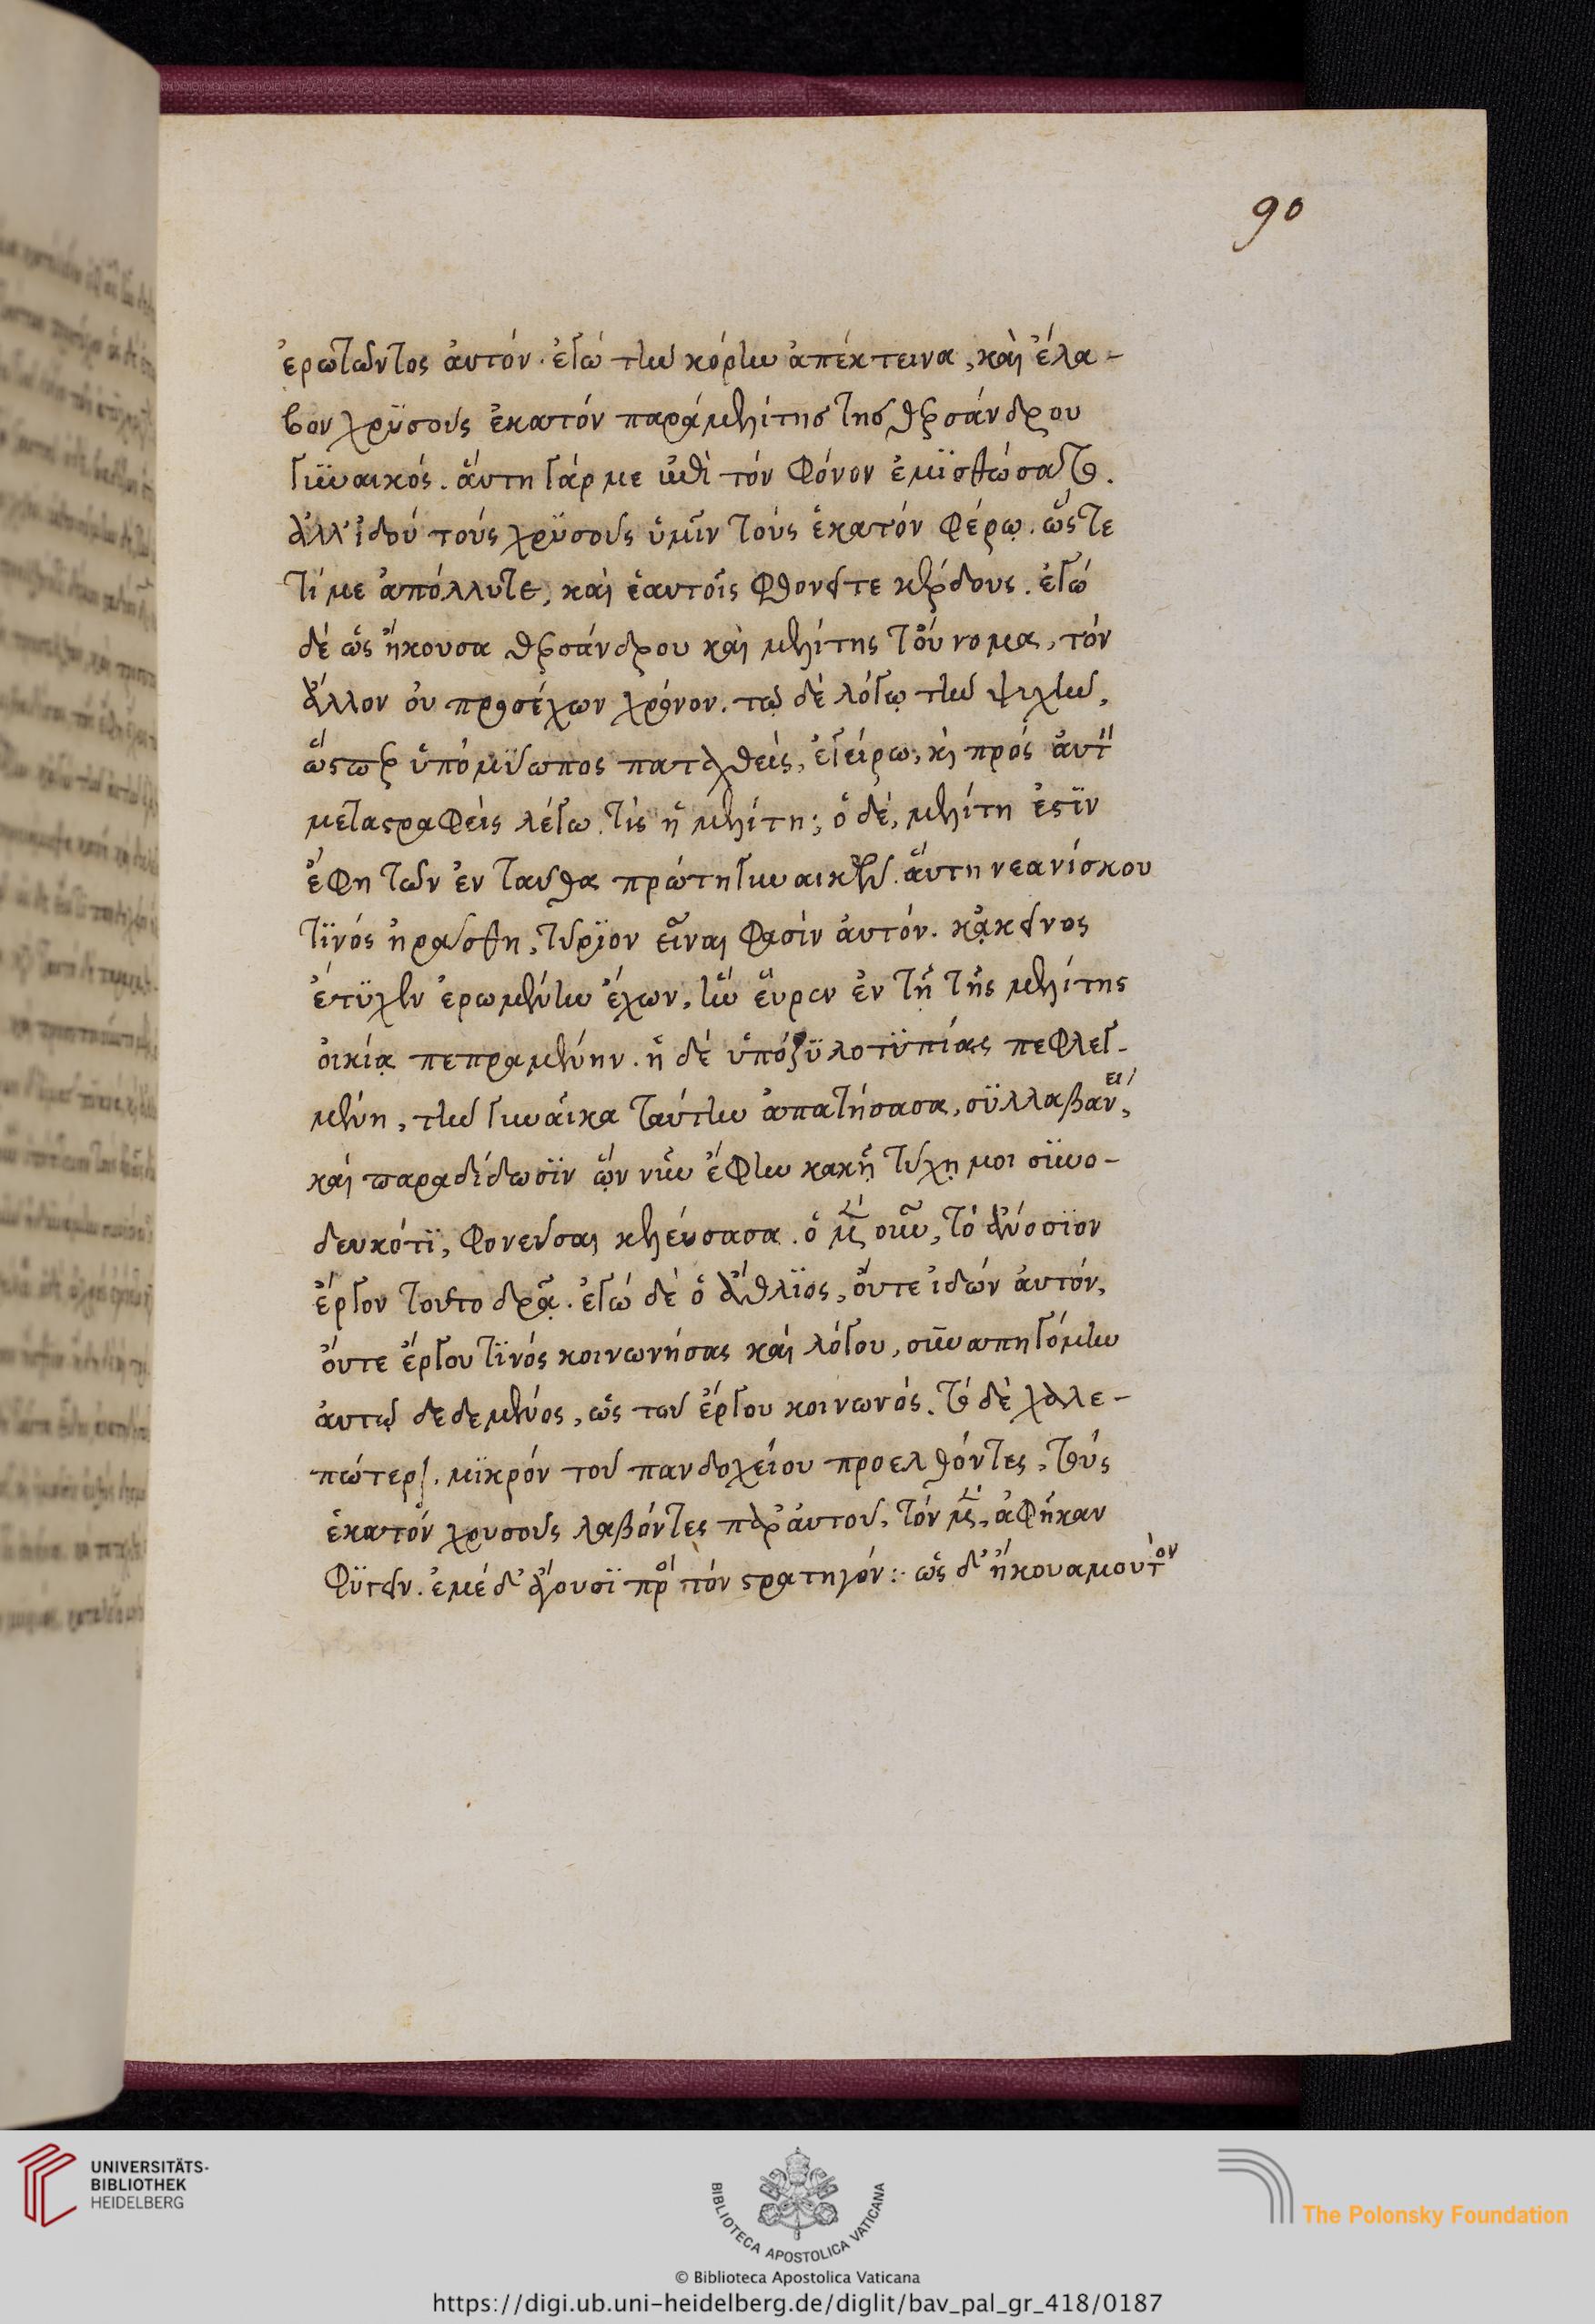 90
ἐρωτῶντος ἀυτόν. ἐγώ τὴν κόρην ἀπέκτεινα, καὶ ἔλα-
βον χρϋσοῦς ἑκατόν παρά μελίτης τῆς θερσάνδρου
γϋναικός. ἅυτη γάρ με ἐπὶ τόν φόνον ἐμϊσθώσατο.
ἀλλ' ἰδού τούς χρϋσοῦς ὑμῖν τούς ἑκατόν φέρω. ὥςτε
τί με ἀπόλλυτε, καὶ ἑαυτοῖς φθονεῖτε κέρδους. ἐγώ
δέ ὡς ἤκουσα θερσάνδρου καὶ μελίτης τοὔνομα, τόν
ἄλλον οὐ προσέχων χρόνον. τῷ δὲ λόγῳ τὴν ψυχὴν,
ὥςπερ ὑπό μύωπος παταχθεὶς, ἐγείρω, κὶ πρός ἀυτ
μεταστραφεὶς λέγω. τίς ἡ μελίτη; ὁ δέ, μελίτη ἐστϊν
ἔφη τῶν ἐνταῦθα πρώτη γυναικῶν. ἅυτη νεανίσκου
τϊνός ἠράσθη, τύριον εἶναι φασίν ἀυτόν. κᾀκεῖνος
ἔτϋχεν ἐρωμένην ἔχων, ἣν εὗρεν ἐν τῇ τῆς μελίτης
οἰκίᾳ πεπραμένην. ἡ δέ ὑπό ζϋλοτϋπίας πεφλεγ-
μένη, τὴν γυναῖκα ταύτην ἀπατήσασα, σϋλλαβάν,
ει
καὶ παραδίδωσϊν ᾧν νῦν ἔφην κακῇ τύχῃ μοι σϋνο-
δευκότϊ, φονεῦσαι κελέυσασα. ὁ μὲν οὖν, τό ἀνόσϊον
ἔργον τοῦτο δρᾷ. ἐγώ δέ ὁ ἄθλϊος, ὄυτε ἰδών ἀυτόν,
ὄυτε ἔργου τϊνός κοινωνήσας καὶ λόγου, συναπηγόμην
ἀυτῷ δεδεμένος, ὡς τοῦ ἔργου κοινωνός. τό δὲ χαλε-
πώτερον. μϊκρόν τοῦ πανδοχείου προελθόντες, τούς
ἑκατόν χρυσοῦς λαβόντες παρ' ἀυτοῦ, τόν μὲν, ἀφῆκαν
φϋγεῖν. ἐμέ δ' ἄγουσϊ πρὸς τόν στρατηγόν: ὡς δ' ἤκουα μου τὸν
UNIVERSITÄTS-
BIBLIOTHEK
HEIDELBERG
BIBLIOTECA APOSTOLICA VATICANA
The Polonsky Foundation
© Biblioteca Apostolica Vaticana
https://digi.ub.uni-heidelberg.de/diglit/bav_pal_gr_418/0187